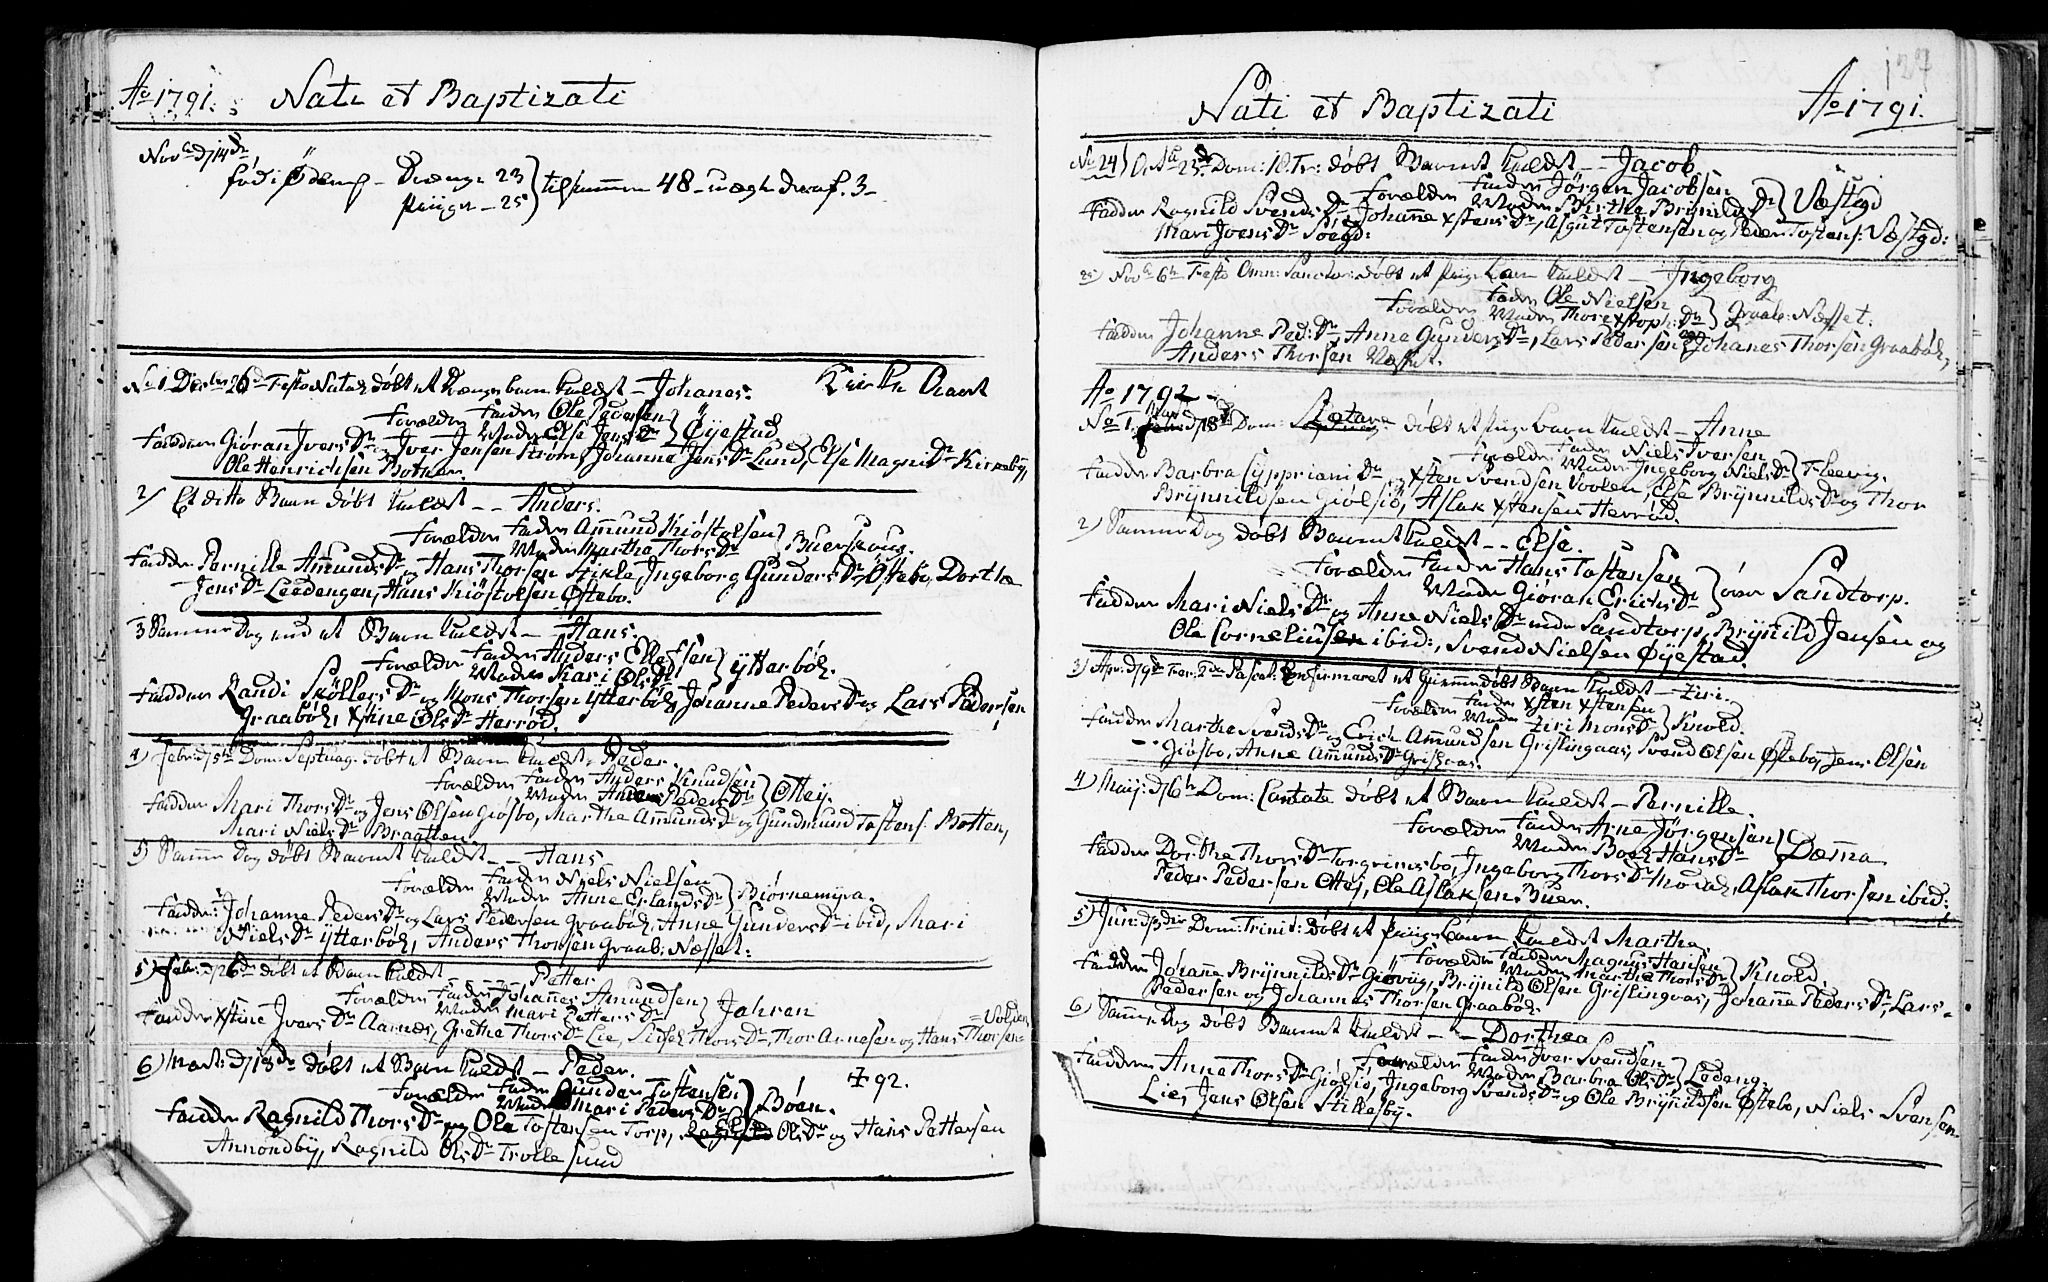 Ao 1791. Nati et Baptizati
Novb d 14de
fød i Ödemß - Drænge 23
Piiger - 25 } tilsammen 48 - uægte deraf 3 -
No 1 Decbr 26d Festo Natal døbt et Drænge barn kaldt - Johanes. Kirke Aaret
Forældre Fader Ole Pedersen
Moder Else JensDr } Öÿestad
Faddere Giøran IversDr og Iver Jensen Strøm, Johanne JensDr Lund, Else MagniDr Kirkebÿe,
Ole Henrichsen Botten.
2) Et ditto Barn døbt kaldet - - Anders.
Forældre Fader Amund Kiøstolsen
Moder Martha ThorsDr } Buerskoug.
Faddere Pernille AmundsDr og Hans Thorsen Stikle, Ingeborg GundersDr Østebo, Dorthe
JensDr Leedengen, Hans Kiøstolsen Østebo.
3 Samme Dag end et Barn kaldet - Hans.
Forældre Fader Anders Ellefsen
Moder Kari OlsDr } ÿtterbøl.
Faddere Randi SkøllersDr og Mons Thorsen ÿtterbøl, Johanne PedersDr og Lars Pedersen
Graabøl, Xstine OlsDr Herrød.
4) Febr: d 5te Dom: Septuag. døbt et Barn kaldt Peder.
Forældre Fader Anders Knudsen
Moder PedersDr } Otteÿ.
Faddere Mari ThorsDr og Jens Olsen Giøsbo, Marthe AmundsDr og Gundmund Tostens: Botten,
Mari NielsDr Braatten
5) Samme Dag døbt Barnet kaldet - - Hans
Forældre Fader Niels Nielsen
Moder Anne ErlandsDr } Biørnemÿra.
Faddere: Johanne PedersDr og Lars Pedersen Graabøl, Anne GundersDr ibid, Mari
NielsDr ÿtterbøl, Anders Thorsen Graab: Næsset:
5) Feb: d 26de døbt et Barn kaldt - Petter
Forældre Fader Johannes Amundsen
Moder Mari PettersDr } Jahren
Faddere Xstine IversDr Aarnæs, Grethe ThorsDr Lie, Sidsel ThorsDr, Thor Arnesen og Hans Thorsen = Volden
6) Marti: d 13de døbt et Barn kaldt - Peder. 1792.
Forældre Fader Gunder Tostensen
Moder Mari PedersDr } Bøen.
Fadder Ragnild ThorsDr og Ole Tostensen Torp, OlsDr og Hans Pettersen
Annondbÿ, Ragnild OlsDr Trolle sund
127
Nati et Baptizati Ao 1791.
No 24) Octb 23de Dom: 18. Tr: døbt Barnet kaldt - - Jacob
Forældre Fader Jörgen Jacobsen
Moder Birthe BrÿnildsDr } Væstgd
Fadder Ragnild SvendsDr Johanne XstensDr, Asgut Tostensen og Peder Tostens: Væstgd:
Mari JoensDr Söegd:
25) Novb 6te Festo Omn: Sanctor: døbt et Pige Barn kaldt - Ingeborg
Forældre Fader Ole Nielsen
Moder Thore Xstoph:Dr } Graab: Næsset:
Fadder Johanne Ped:Dr Anne GundersDr, Lars Pedersen og Johanes Thorsen Graabøl,
Anders Thorsen Næsset.
Ao 1792 -
No 1. Mart: d 18de Dom: Lætare døbt et Pige barn kaldt - Anne
Forældre Fader Niels Iversen
Moder Ingeborg NielsDr } Fleevig.
Fadder Barbra CÿpprianiDr og Xsten Svendsen Voolen, Else BrÿnnildsDr og Thor
Brÿnnildsen Giølsiö, Aslak Xstensen Herrød.
2) Samme Dag døbt Barnet kaldt - - Else.
Forældre Fader Hans Tostensen
Moder Giøran ErichsDr } øvre Sandtorp.
Fadder Mari NielsDr og Anne NielsDr nedre Sandtorp, Brÿnild Jensen og
Ole Corneliusen ibid:, Svend Nielsen Øÿestad.
3) Apr: d 9de Fer: 2da Pascat. Confirmeret et hiemmedøbt Barn kaldt - Ziri.
Forældre Fader Xsten Xstensen
Moder Ziri MonsDr } Knold.
Fadder Martha SvendsDr og Erich Amundsen Grislingaas, Svend Olsen Østebo, Jens Olsen
Giøsbo, Anne AmundsDr Grisgaas.
4) Maij: d 6te Dom: Cantate døbt et Barn kaldt - Pernille.
Forældre Fader Arne Jørgensen
Moder Boel HansDr } Damna
Fadder Dorthe ThorsDr Torgrimsbo, Ingeborg ThorsDr , Aslak Thorsen ibid:,
Peder Pedersen Ottej, Ole Aslaksen Buer.
5) Jun: d 3die Dom: Trinit: døbt et Pige barn kaldt Martha.
Forældre Fader Magnus Hansen
Moder Martha ThorsDr } Knold
Fadder Johanne BrÿnnildsDr Giøvig, Brÿnild Olsen Grislingaas, Johanne PedersDr, Lars
Pedersen og Johannes Thorsen Graabøl.
6) Samme Dag døbt Barnet kaldt - - Dorthea
Forældre Fader Iver Svendsen
Moder Barbra OlsDr } Ledeng.
Fadderen Anne ThorsDr Giølsiö, Ingeborg SvendsDr og Ole Brÿnildsen Østebo, Niels Svensen
Lie, Jens Olsen Stiklesbÿ.